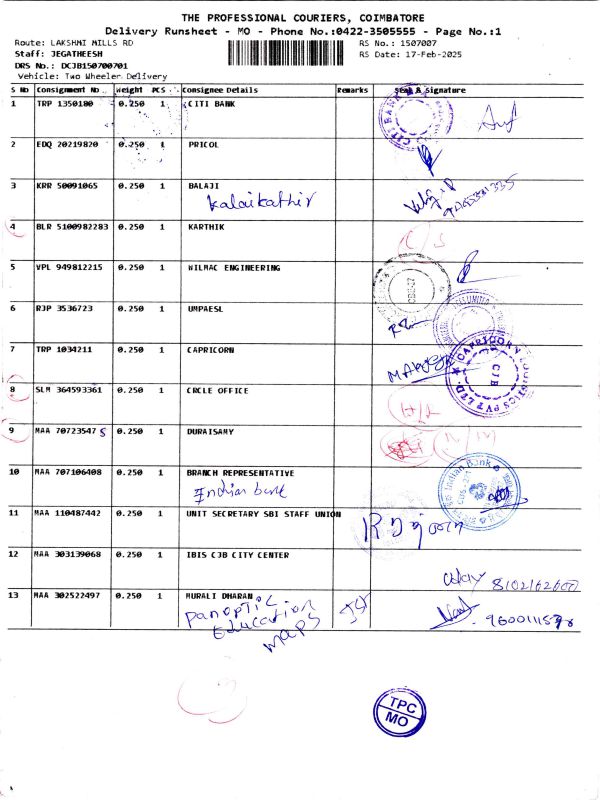 THE PROFESSIONAL COURIERS, COIMBATORE
Delivery Runsheet - MO - Phone No.:0422-3505555 - Page No.:1
Route: LAKSHMI MILLS RD RS No.: 1507007
Staff: JEGATHEESH RS Date: 17-Feb-2025
DRS No.: DCJB150700701
Vehicle: Two Wheeler Delivery
S No Consignment No Weight PCS Consignee Details Remarks Seal & Signature
1 TRP 1350180 0.250 1 CITI BANK
2 EDQ 20219820 0.250 1 PRICOL
3 KRR 50091065 0.250 1 BALAJI
kalaikathir
4 BLR 5100982283 0.250 1 KARTHIK
5 VPL 949812215 0.250 1 WILMAC ENGINEERING
6 RJP 3536723 0.250 1 UMPAESL
7 TRP 1034211 0.250 1 CAPRICORN
CAPRICORN LOGISTICS PVT LTD.
CJB
8 SLM 364593361 0.250 1 CRCLE OFFICE
9 MAA 707235475 0.250 1 DURAISAMY
10 MAA 707106408 0.250 1 BRANCH REPRESENTATIVE
Indian bank
Indian Bank
11 MAA 110487442 0.250 1 UNIT SECRETARY SBI STAFF UNION
12 MAA 303139068 0.250 1 IBIS CJB CITY CENTER
13 MAA 302522497 0.250 1 MURALI DHARAN
PANOPTIC
EDUCATION
MAPS
TPC
MO